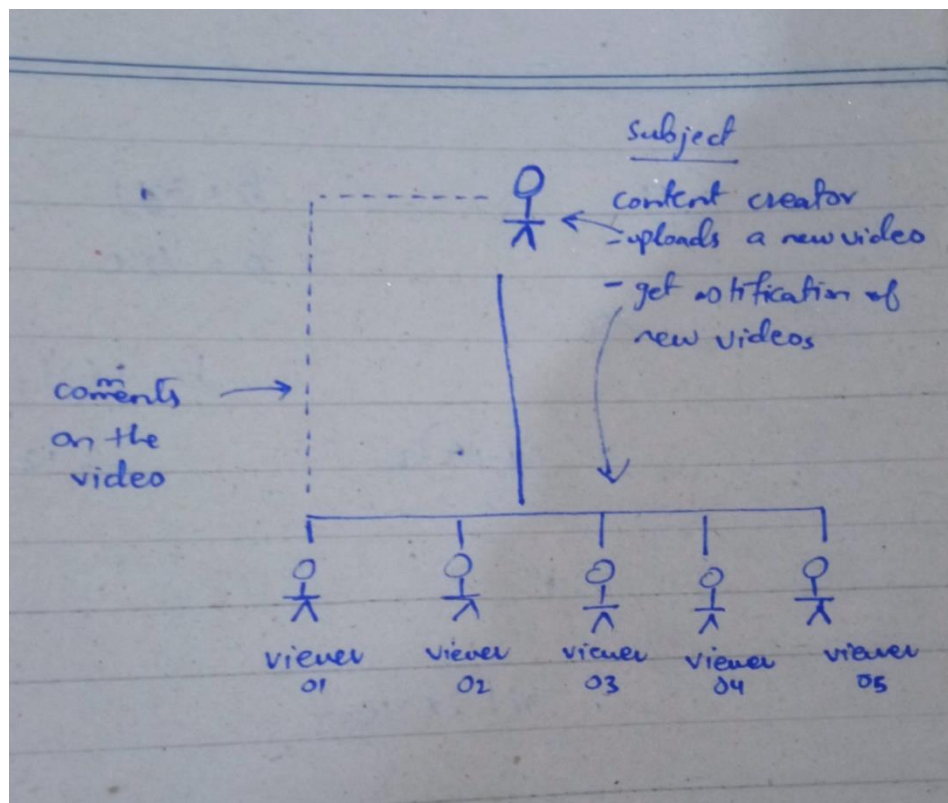 Subject
content creator
- uploads a new video
- get notification of
new videos
comments
on the
video
viewer
01
viewer
02
viewer
03
viewer
04
viewer
05